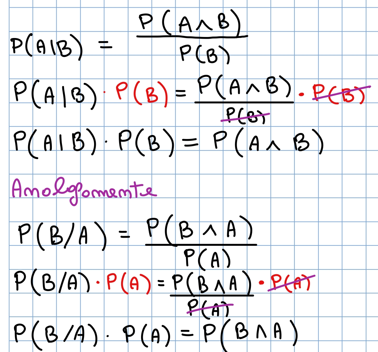 P(A|B) = P(A∧B) / P(B)
P(A|B) · P(B) = P(A∧B) / P(B) · P(B)
P(A|B) · P(B) = P(A∧B)
Analogamente
P(B/A) = P(B∧A) / P(A)
P(B/A) · P(A) = P(B∧A) / P(A) · P(A)
P(B/A) · P(A) = P(B∧A)